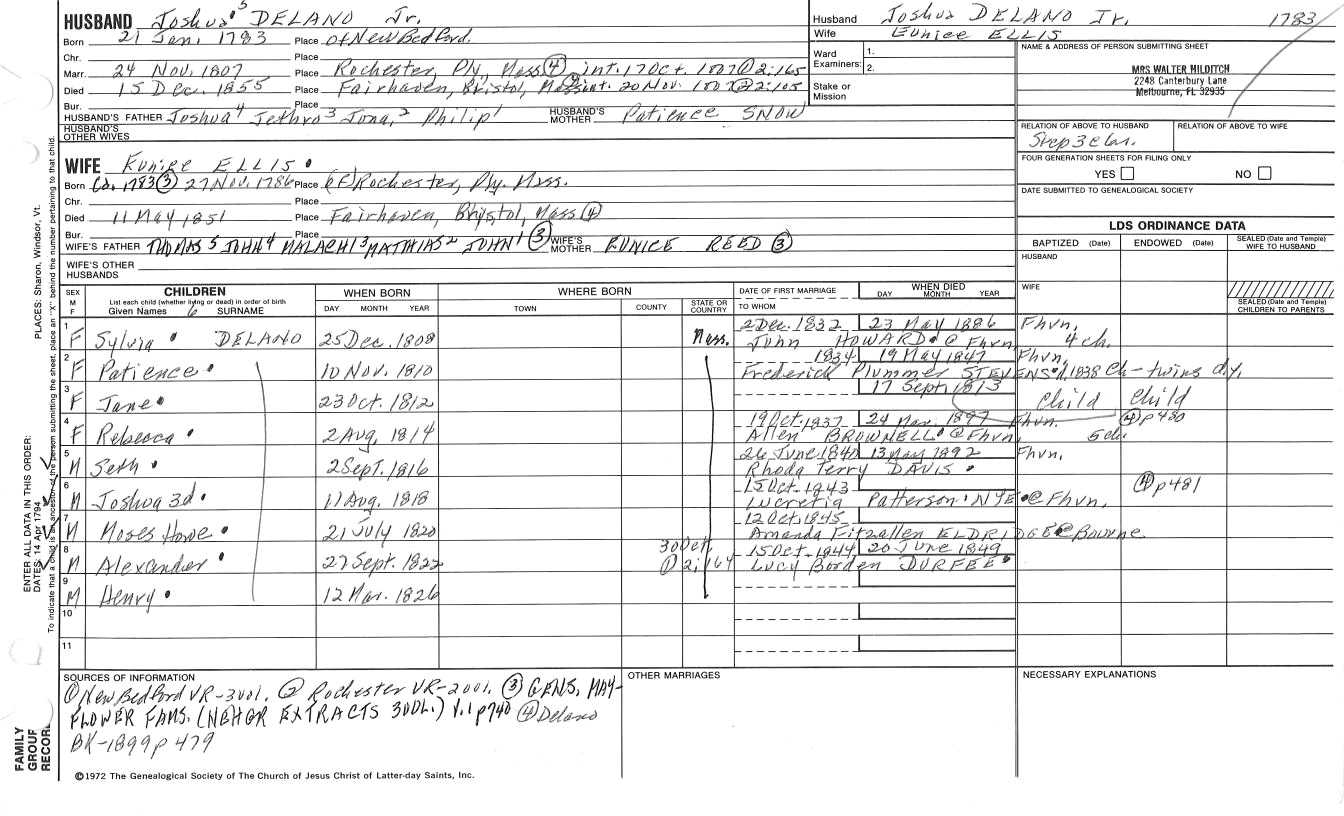 HUSBAND Joshua⁵ DELANO Jr.
Born 21 Jan. 1783 Place of New Bedford.
Chr. Place
Marr. 24 Nov. 1807 Place Rochester, Ply, Mass ④ int. 17 Oct. 1807 ① 2:165
Died 15 Dec. 1855 Place Fairhaven, Bristol, Mass ② int. 20 Nov. 1807 @ 2:105
Bur. Place
HUSBAND'S FATHER Joshua⁴ Jethro³ Jona,² Philip¹ HUSBAND'S MOTHER Patience SNOW
HUSBAND'S OTHER WIVES
WIFE Eunice ELLIS •
Born Ca. 1783 ③ 27 Nov. 1786 Place (of) Rochester, Ply. Mass.
Chr. Place
Died 11 May 1851 Place Fairhaven, Bristol, Mass ④
Bur. Place
WIFE'S FATHER THOMAS⁵ JOHN⁴ MALACHI³ MATTHIAS² JOHN¹ ③ WIFE'S MOTHER EUNICE REED ③
WIFE'S OTHER HUSBANDS
Husband Joshua DELANO Jr. 1783
Wife EUNICE ELLIS
Ward Examiners: 1.
2.
Stake or Mission
NAME & ADDRESS OF PERSON SUBMITTING SHEET
MRS WALTER HILDITCH
2248 Canterbury Lane
Melbourne, FL 32935
RELATION OF ABOVE TO HUSBAND RELATION OF ABOVE TO WIFE
Step 3
FOUR GENERATION SHEETS FOR FILING ONLY
YES NO
DATE SUBMITTED TO GENEALOGICAL SOCIETY
LDS ORDINANCE DATA
BAPTIZED (Date) ENDOWED (Date) SEALED (Date and Temple) WIFE TO HUSBAND
HUSBAND
WIFE
SEALED (Date and Temple) CHILDREN TO PARENTS
SEX M F CHILDREN WHEN BORN WHERE BORN DATE OF FIRST MARRIAGE WHEN DIED
List each child (whether living or dead) in order of birth
Given Names 6 SURNAME DAY MONTH YEAR TOWN COUNTY STATE OR COUNTRY TO WHOM DAY MONTH YEAR
1 2 Dec. 1832 23 May 1886 Fhvn,
F Sylvia • DELANO 25 Dec. 1808 Mass. John HOWARD • @ Fhvn, 4 ch.
2 1834 19 May 1847 Fhvn,
F Patience • 10 Nov. 1810 Frederick Plummer STEVENS • 1838 ch - twins d.y.
3 17 Sept. 1813
F Jane • 23 Oct. 1812 Child Child
4 19 Oct. 1837 24 Mar. 1897 Fhvn. ④ p480
F Rebecca • 2 Aug, 1814 Allen BROWNELL • @ Fhvn, 5 ch.
5 26 June 1841 13 May 1892 Fhvn,
M Seth • 2 Sept. 1816 Rhoda Terry DAVIS •
6 15 Oct. 1843 ④ p481
M Joshua 3d • 11 Aug. 1818 Lucretia Patterson • NYE • @ Fhvn,
7 12 Oct. 1845
M Moses Howe • 21 July 1820 Amanda Fitzallen ELDRIDGE • @ Bourne
8 30 Oct, 15 Oct. 1844 20 June 1849
M Alexander • 27 Sept. 1822 ① 2:164 Lucy Borden DURFEE •
9
M Henry • 12 Mar. 1826
10
11
SOURCES OF INFORMATION OTHER MARRIAGES NECESSARY EXPLANATIONS
① New Bedford VR-3001. ② Rochester VR-2001. ③ GENS, MAY-
FLOWER FAMS. (NEHGR EXTRACTS 300L.) V.1 p740 ④ Delano
BK-1899 p 479
©1972 The Genealogical Society of The Church of Jesus Christ of Latter-day Saints, Inc.
PLACES: Sharon, Windsor, Vt.
ENTER ALL DATA IN THIS ORDER:
DATES: 14 Apr 1794
To indicate that a child is an ancestor of the person submitting the sheet, place an "X" behind the number pertaining to that child.
FAMILY GROUP RECORD